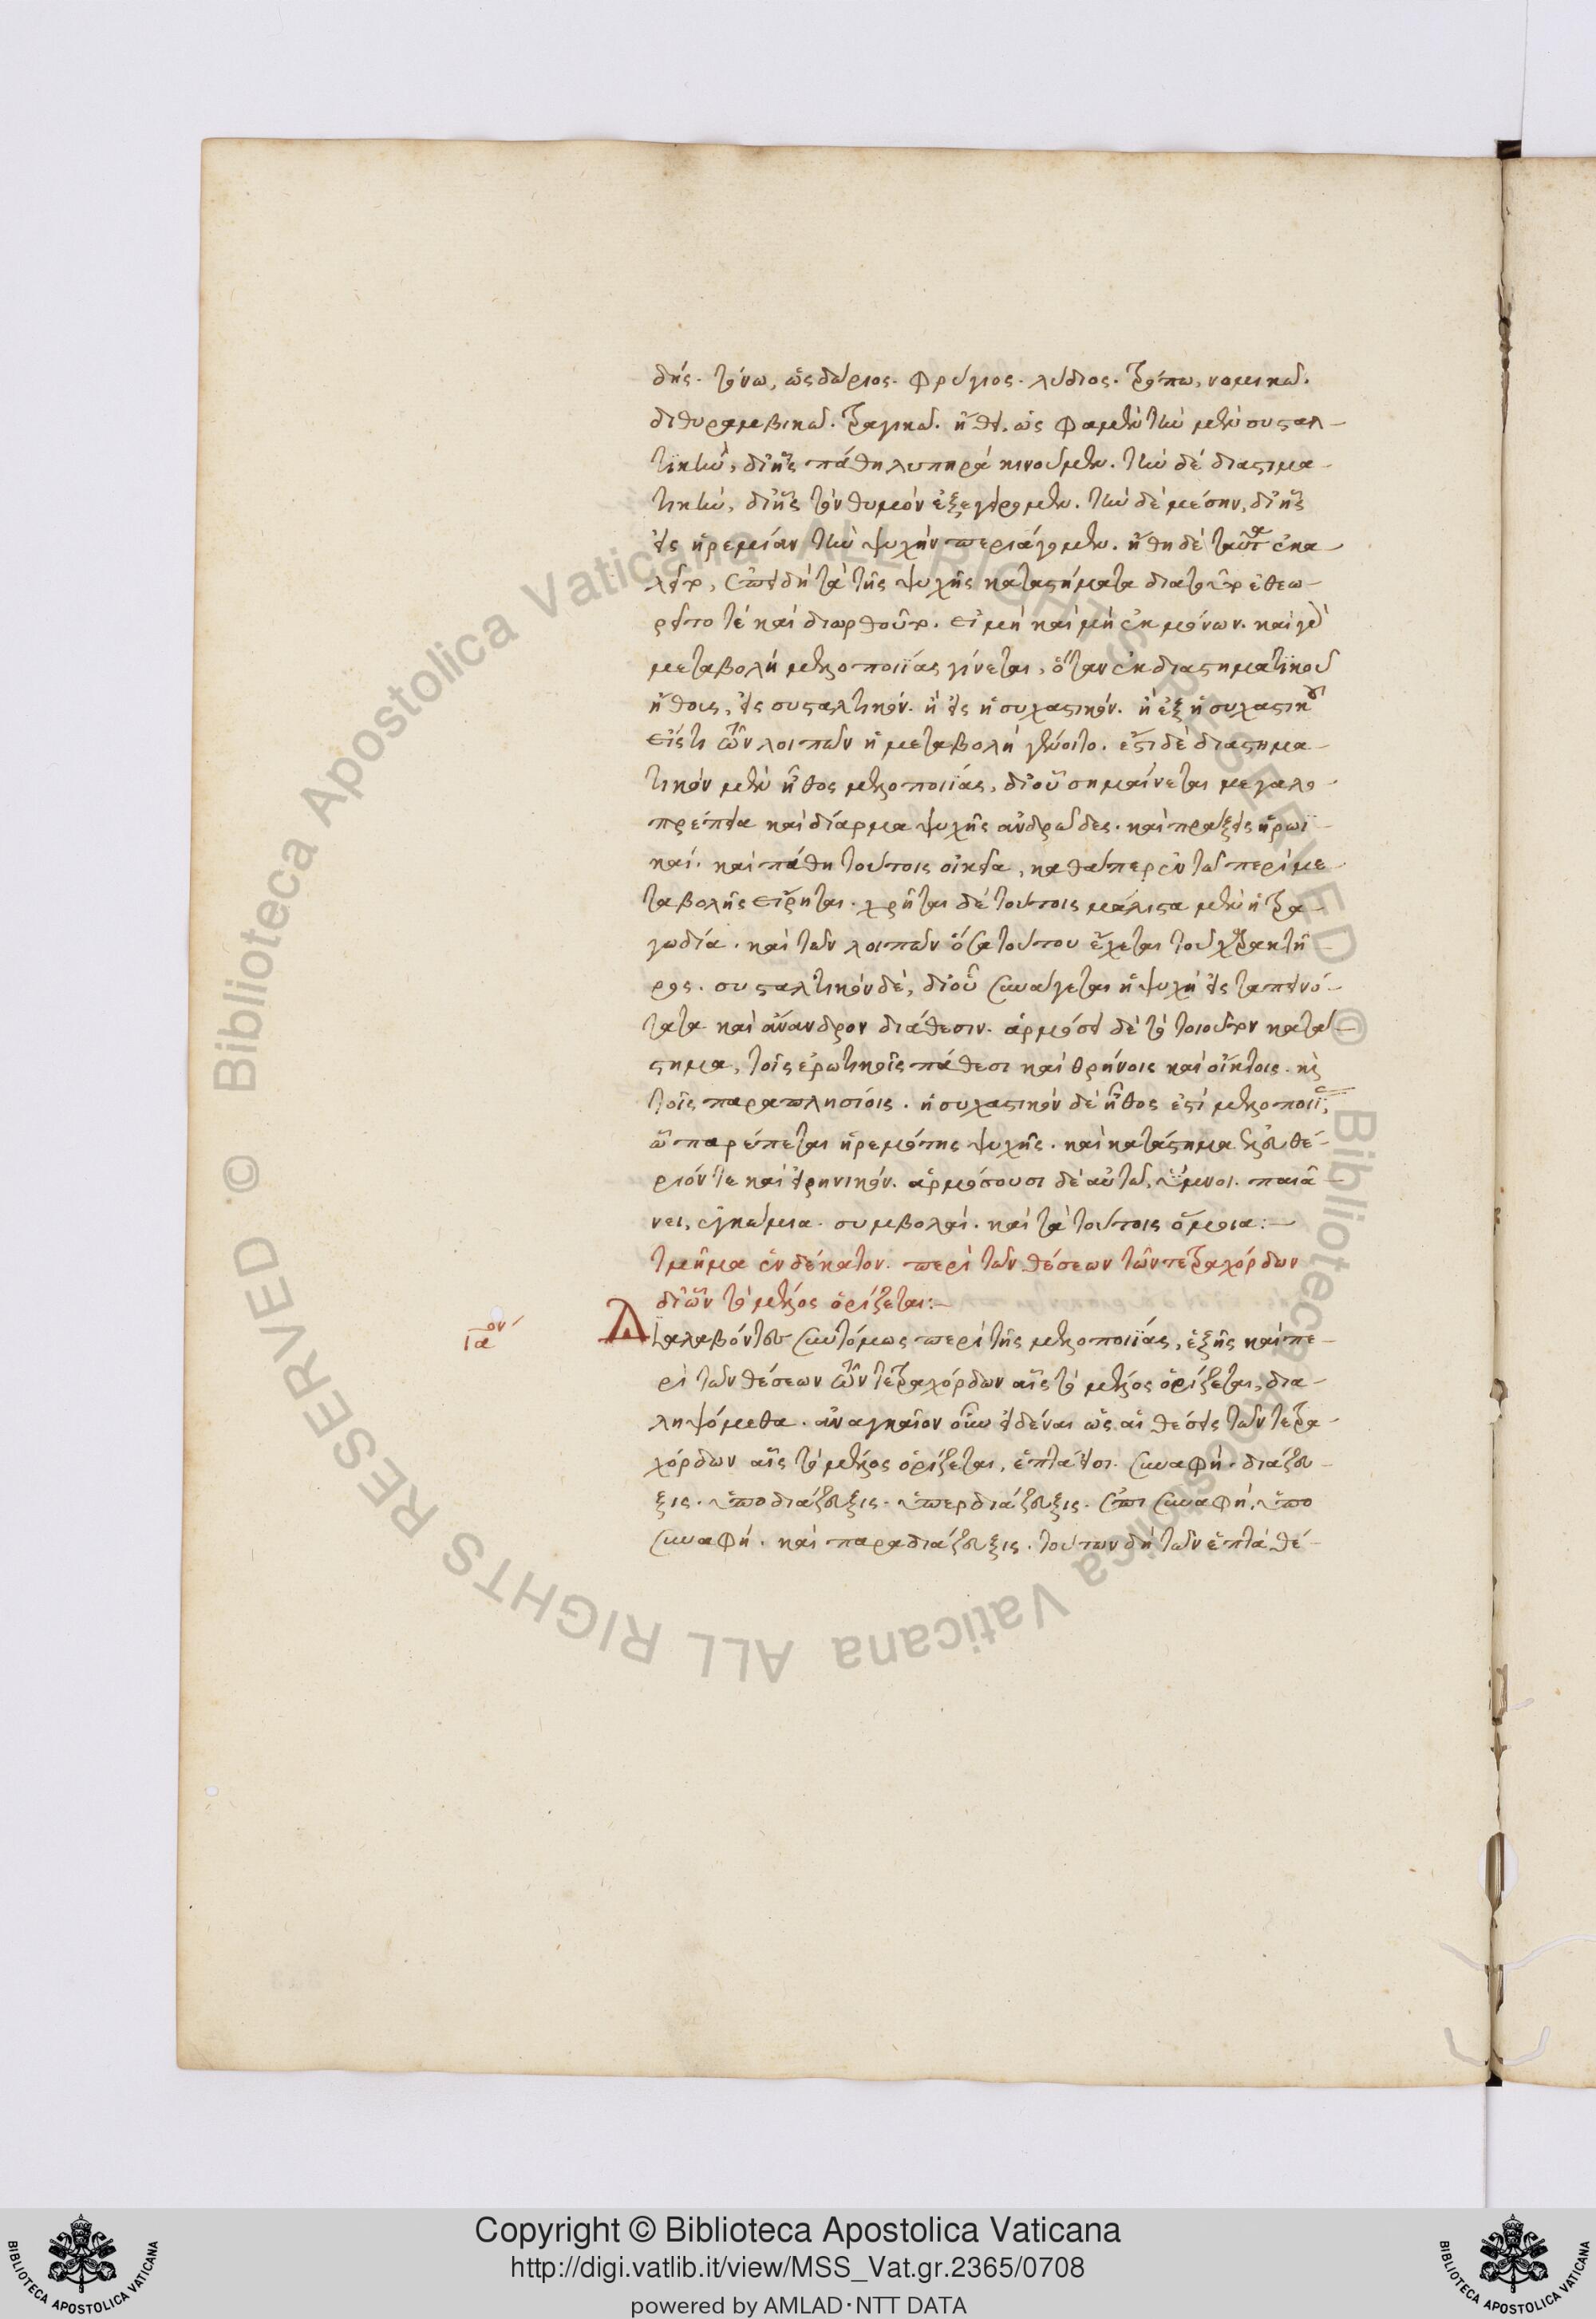 δής. τόνω, ὡς δώριος. φρύγιος. λύδιος. τρόπω, νομικῶ.
διθυραμβικῶ. τραγικῶ. ἤθει. ὡς φαμὲν τὴν μὲν συσταλ-
τϊκὴν, δι' ἧς πάθη λυπηρὰ κινοῦμεν. τὴν δὲ διαστιμα-
τικὴν, δι' ἧς τὸν θυμὸν ἐξεγείρομεν. τὴν δὲ μέσην, δι' ἧς
εἰς ἠρεμίαν τὴν ψυχὴν περιάγομεν. ἤθη δὲ ταῦτα ἐκα-
λεῖτο, ἐπειδὴ τὰ τῆς ψυχῆς καταστήματα διὰ τοῦτο ἐθεω-
ρεῖτο τὲ καὶ διωρθοῦτο. εἰ μὴ καὶ μὴ ἐκ μόνων. καὶ γὰρ
μεταβολὴ μελοποιΐας γίνεται, ὅταν ἐκ διαστηματϊκοῦ
ἤθους, εἰς συσταλτικόν. ἢ εἰς ἡσυχαστικόν. ἢ ἐξ ἡσυχαστικοῦ
εἴς τι τῶν λοιπῶν ἡ μεταβολὴ γένοιτο. ἔστι δὲ διαστημα-
τικὸν μὲν ἦθος μελοποιΐας, δι' οὗ σημαίνεται μεγαλο-
πρέπεια καὶ δίαρμα ψυχῆς ἀνδρῶδες. καὶ πράξεις ἡρωϊ-
καί. καὶ πάθη τούτοις οἰκεῖα, καθάπερ ἐν τῶ περὶ με-
ταβολῆς εἴρηται. χρῆται δὲ τούτοις μάλιστα μὲν ἡ τρα-
γωδία. καὶ τῶν λοιπῶν ὅσα τούτου ἔχεται τοῦ χαρακτῆ-
ρος. συσταλτικὸν δὲ, δι' οὗ συνάγεται ἡ ψυχὴ εἰς ταπεινό-
τατα καὶ ἄνανδρον διάθεσιν. ἁρμόσει δὲ τὸ τοιοῦτον κατά-
στημα, τοῖς ἐρωτικοῖς πάθεσι καὶ θρήνοις καὶ οἴκτοις. καὶ
τοῖς παραπλησίοις. ἡσυχαστικὸν δὲ ἦθος ἐστὶ μελοποιΐας,
ὧ παρέπεται ἠρεμότης ψυχῆς. καὶ κατάστημα ἐλευθέ-
ριόν τε καὶ εἰρηνικόν. ἁρμόσουσι δὲ αὐτῶ, ὕμνοι. παιᾶ-
νες, ἐγκώμια. συμβολαί. καὶ τὰ τούτοις ὅμοια:-
τμῆμα ἑνδέκατον. περὶ τῶν θέσεων τῶν τετραχόρδων
δι' ὧν τὸ μέλος ὁρίζεται:-
ια ον
Διαλαβόντες συντόμως περὶ τῆς μελοποιΐας, ἑξῆς καὶ πε-
ρὶ τῶν θέσεων τῶν τετραχόρδων αἷς τὸ μέλος ὁρίζεται, δια-
ληψόμεθα. ἀναγκαῖον οὖν εἰδέναι ὡς αἱ θέσεις τῶν τετρα-
χόρδων αἷς τὸ μέλος ὁρίζεται, ἑπτά εἰσι. συναφή. διάζευ-
ξις. ὑποδιάζευξις. ὑπερδιάζευξις. ἐπισυναφή. ὑπο
συναφή. καὶ παραδιάζευξις. τούτων δὴ τῶν ἑπτὰ θέ-
Copyright © Biblioteca Apostolica Vaticana
http://digi.vatlib.it/view/MSS_Vat.gr.2365/0708
powered by AMLAD·NTT DATA
BIBLIOTECA APOSTOLICA VATICANA
BIBLIOTECA APOSTOLICA VATICANA
© Biblioteca Apostolica Vaticana ALL RIGHTS RESERVED
© Biblioteca Apostolica Vaticana ALL RIGHTS RESERVED